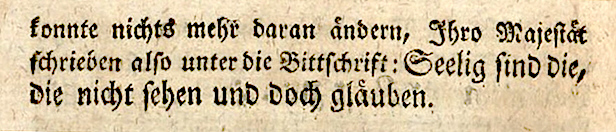 konnte nichts mehr daran ändern, Ihro Majestät
schrieben also unter die Bittschrift: Seelig sind die,
die nicht sehen und doch gläuben.